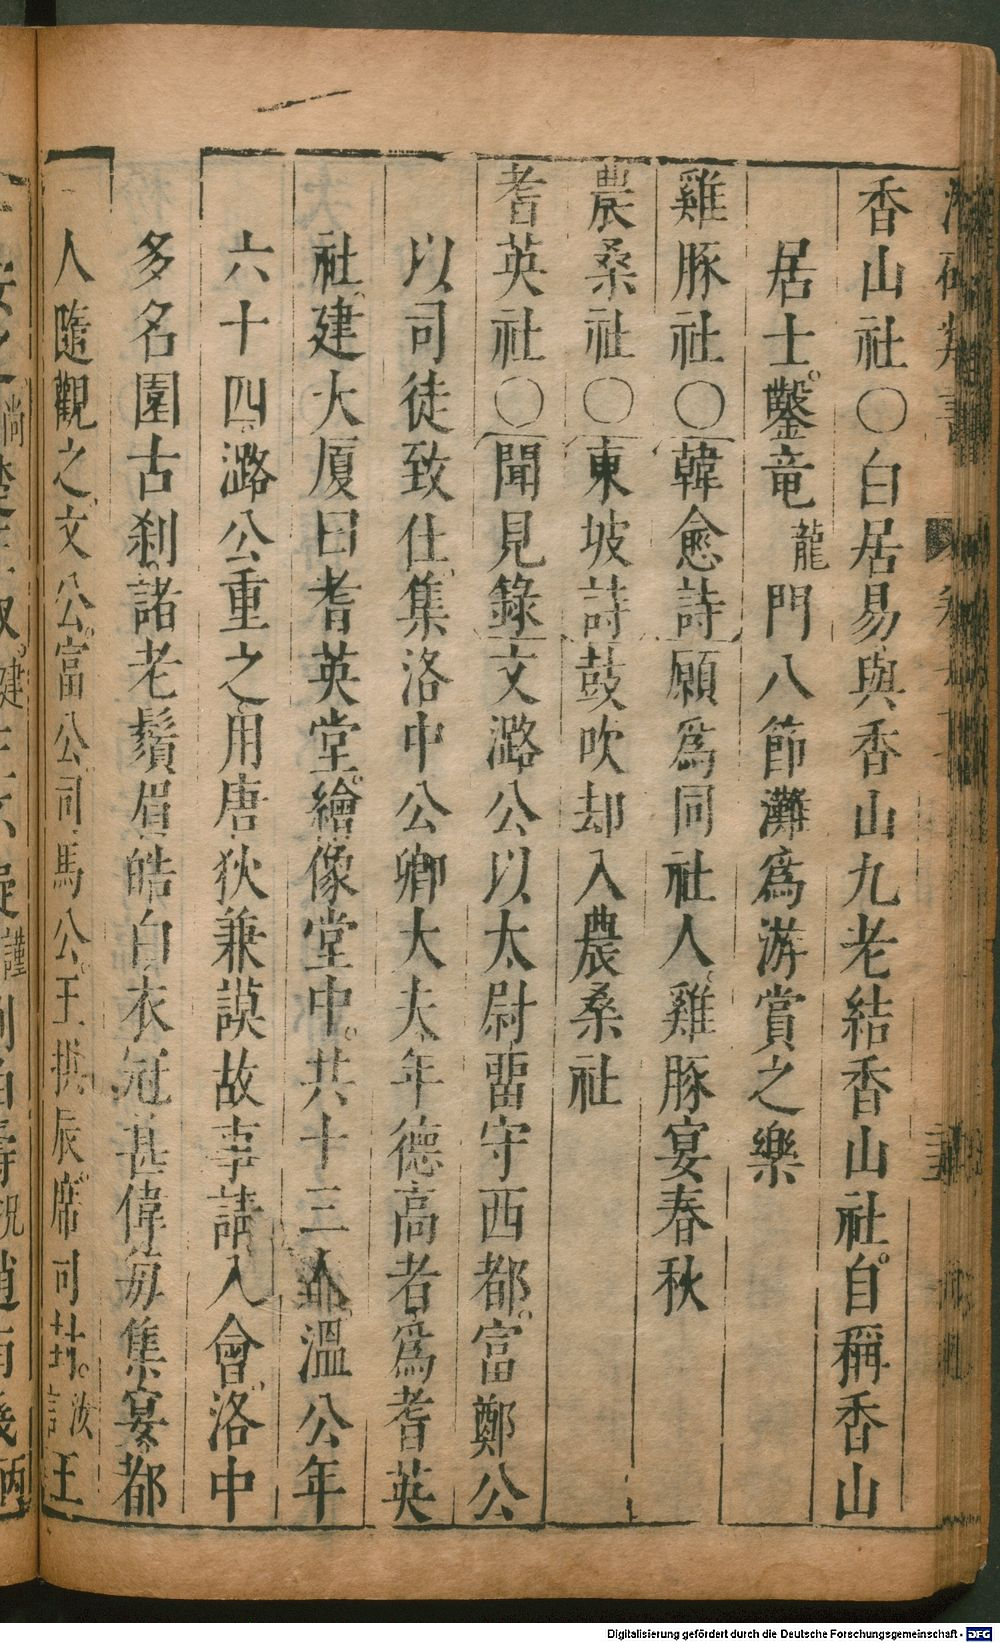 香山社〇白居易與香山九老結香山社。自稱香山
居士。鑿竜龍門八節灘爲游賞之樂
雞豚社〇韓愈詩願爲同社人。雞豚宴春秋
農桑社〇東坡詩鼓吹却入農桑社
耆英社〇聞見錄文潞公以太尉畱守西都。富鄭公
以司徒致仕。集洛中公卿大夫年德高者爲耆英
社。建大厦曰耆英堂。繪像堂中。共十三人。溫公年
六十四。潞公重之。用唐狄兼謨故事請入會。洛中
多名園古刹。諸老鬚眉皓白。衣冠甚偉。每集宴。都
人隨觀之。文公。富公。司馬公。王拱辰。席司封。汝言王
Digitalisierung gefördert durch die Deutsche Forschungsgemeinschaft - DFG